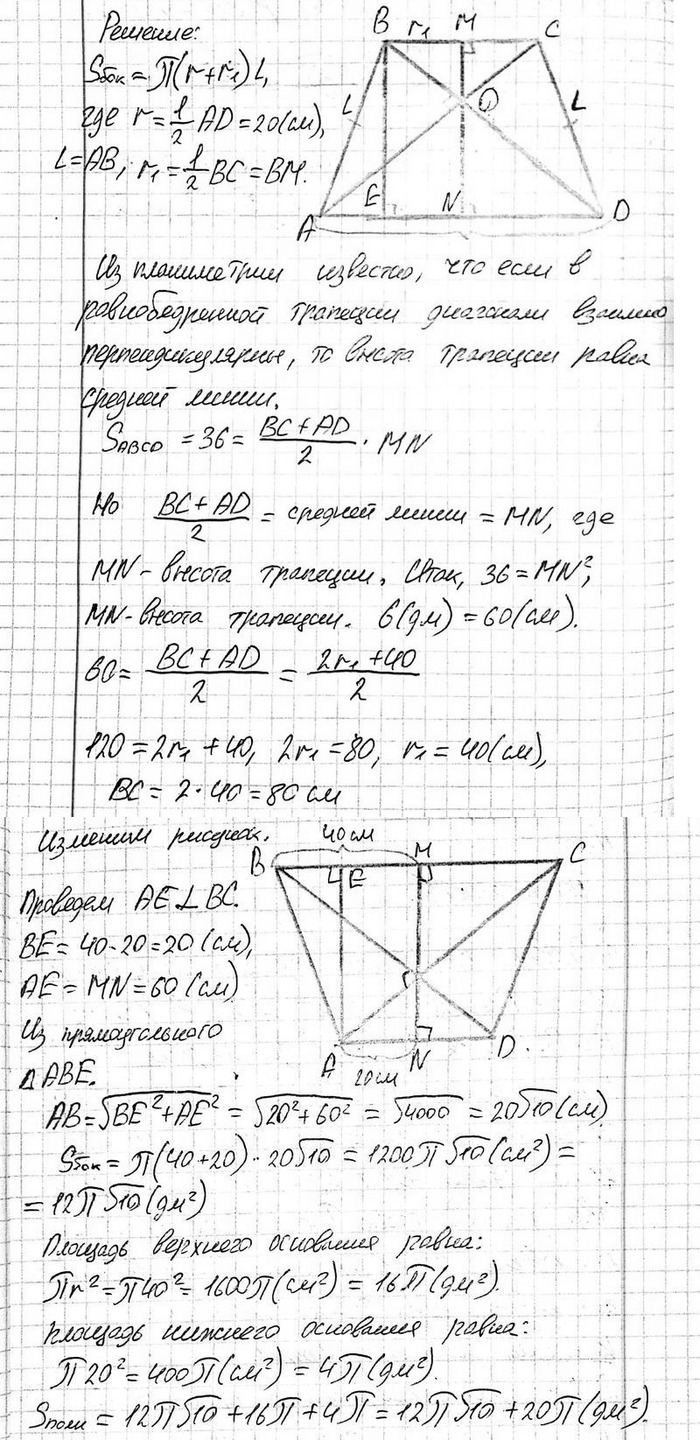 Решение:
Sбок = π(r+r₁)L,
где r = 1/2 AD = 20(см),
L=AB, r₁ = 1/2 BC = BM.
B r₁ M C
L O L
A E N D
Из планиметрии известно, что если в
равнобедренной трапеции диагонали взаимно
перпендикулярны, то высота трапеции равна
средней линии.
S_ABCD = 36 = (BC + AD)/2 · MN
Но (BC + AD)/2 = средней линии = MN, где
MN - высота трапеции. Итак, 36 = MN²,
MN - высота трапеции. 6(дм) = 60(см).
60 = (BC + AD)/2 = (2r₁ + 40)/2
120 = 2r₁ + 40, 2r₁ = 80, r₁ = 40(см),
BC = 2 · 40 = 80 см
Изменим рисунок.
40см
B E M C
A N D.
20см
Проведем AE⊥BC.
BE = 40-20 = 20 (см),
AE = MN = 60 (см)
Из прямоугольного
ΔABE.
AB = √(BE² + AE²) = √(20² + 60²) = √4000 = 20√10 (см)
Sбок = π(40+20) · 20√10 = 1200π√10 (см²) =
= 12π√10 (дм²)
Площадь верхнего основания равна:
πr² = π40² = 1600π(см²) = 16π(дм²).
Площадь нижнего основания равна:
π20² = 400π(см²) = 4π(дм²).
Sполн = 12π√10 + 16π + 4π = 12π√10 + 20π(дм²).